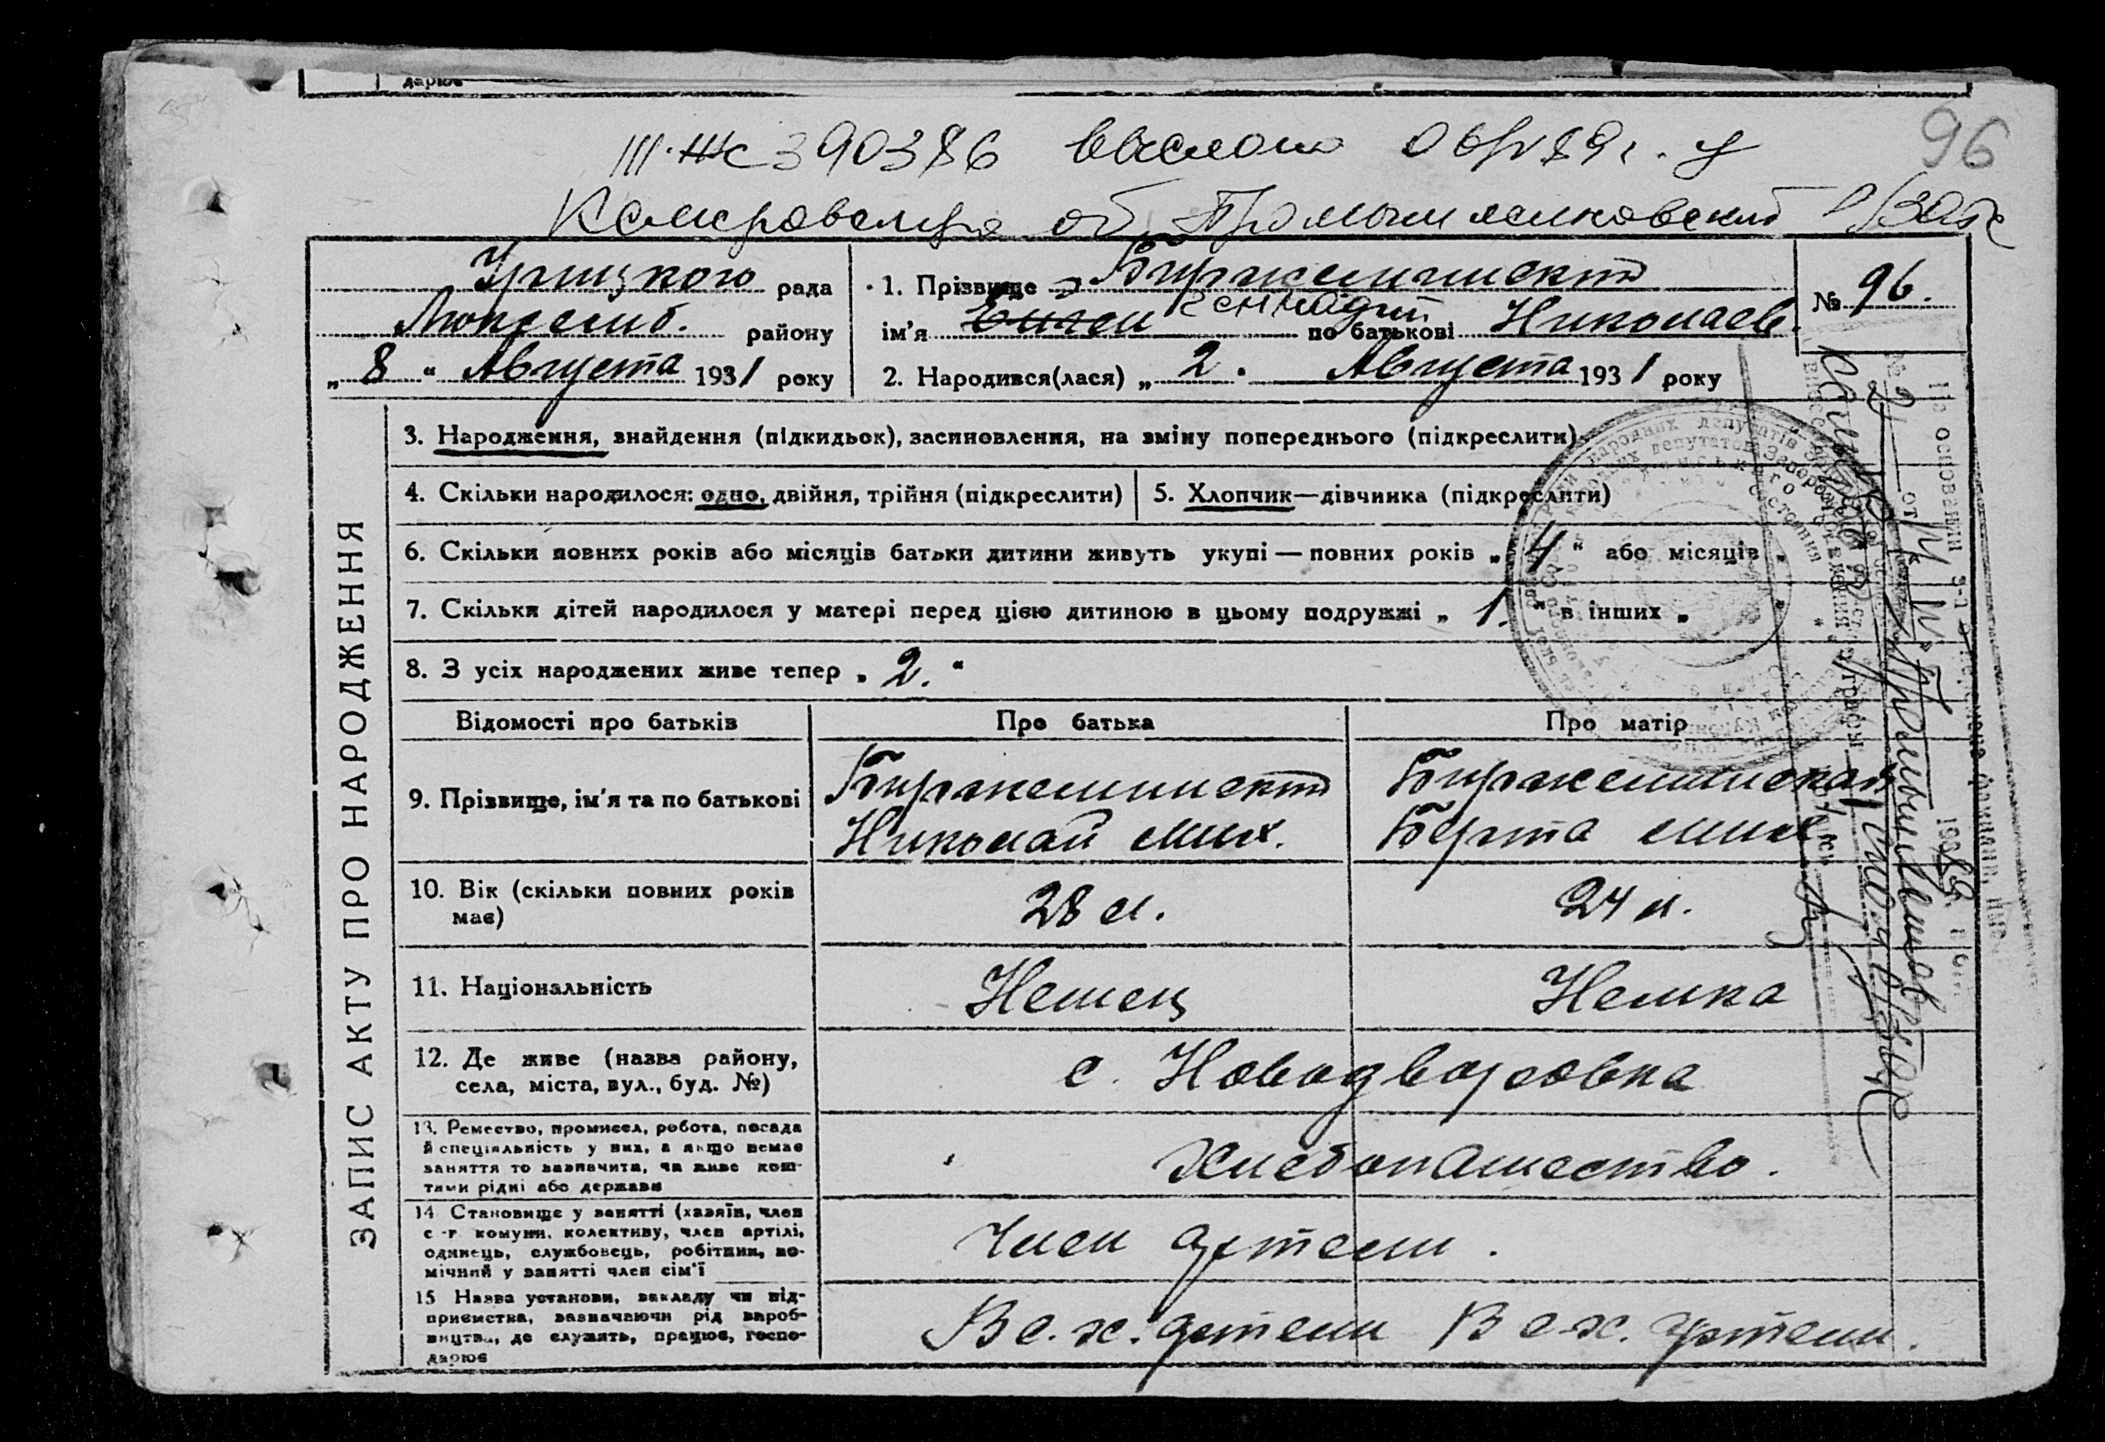 дарює
96
III-ЖС 390386 выслано 06/IV 89г. в
Кемеровская об. Промышленновский р/ЗАГС
Урицкого рада
Люксемб. району
„ 8 “ Августа 1931 року
1. Прізвище Биржеминскт
ім'я Евген Геннадий по батькові Николаев.
2. Народився(лася) „ 2 “ Августа 1931 року
№ 96.
ЗАПИС АКТУ ПРО НАРОДЖЕННЯ
3. Народження, знайдення (підкидьок), засиновлення, на зміну попереднього (підкреслити)
4. Скільки народилося: одно, двійня, трійня (підкреслити)
5. Хлопчик—дівчинка (підкреслити)
6. Скільки повних років або місяців батьки дитини живуть укупі — повних років „ 4 “ або місяців „
7. Скільки дітей народилося у матері перед цією дитиною в цьому подружжі „ 1. “ в інших „
8. З усіх народжених живе тепер „ 2. “
Відомості про батьків Про батька Про матір
9. Прізвище, ім'я та по батькові
Николай Мих.
Берта Мих.
10. Вік (скільки повних років має)
28 л.
24 л.
11. Національність
Немец
Немка
12. Де живе (назва району,
села, міста, вул., буд. №)
с. Новодворовка
13. Ремество, промисел, робота, посада
й спеціяльність у них, а якщо немає
заняття то зазначити, чи живе кош-
тами рідні або держави
Хлебопашество.
14 Становище у занятті (хазяїн, член
с.-г. комуни, колективу, член артілі,
одинець, службовець, робітник, по-
мічний у занятті член сім'ї
Член артели.
15 Назва установи, закладу чи під-
приємства, зазначаючи рід вироб-
ництва, де служить, працює, госпо-
дарює
В с.х. артели В с-х. артели.